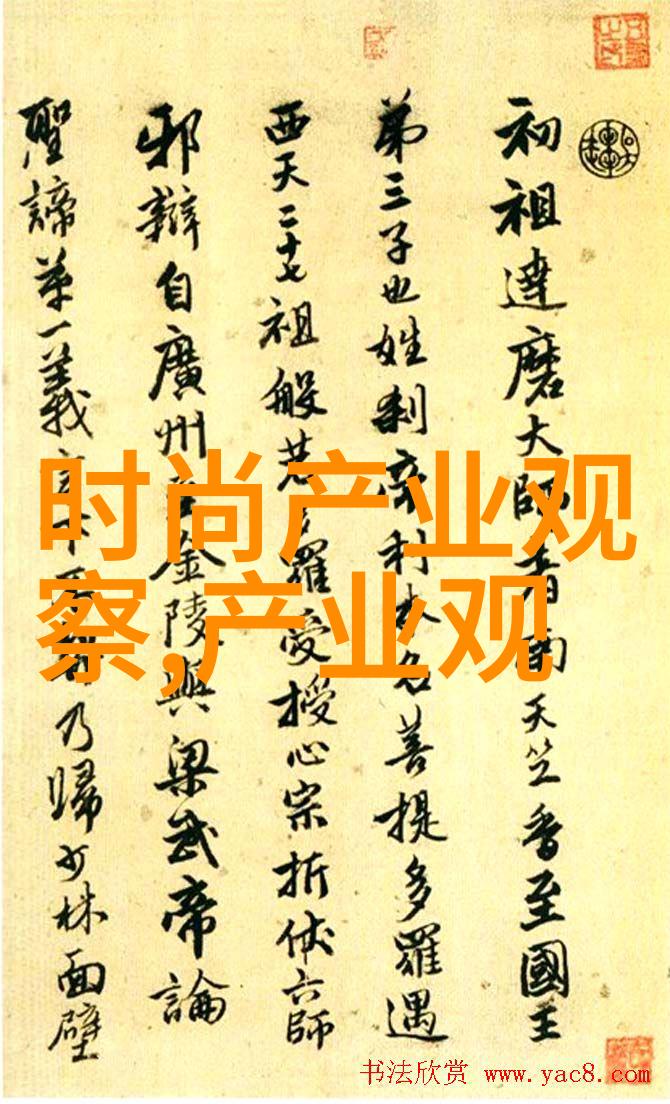 初祖達磨大師者南天竺香至國王
第三子也姓刹帝利本名菩提多羅遇
西天二十七祖般若多羅受授心宗折伏六師
邪辯自廣州至金陵與梁武帝論
聖諦第一義言不乃歸少林面壁
时尚产业观
察,产业观
书法欣赏 www.yac8.com